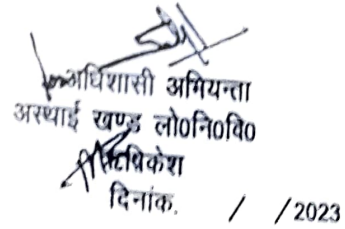 अधिशासी अभियन्ता
अस्थाई खण्ड लो०नि०वि०
ऋषिकेश
दिनांक. / /2023